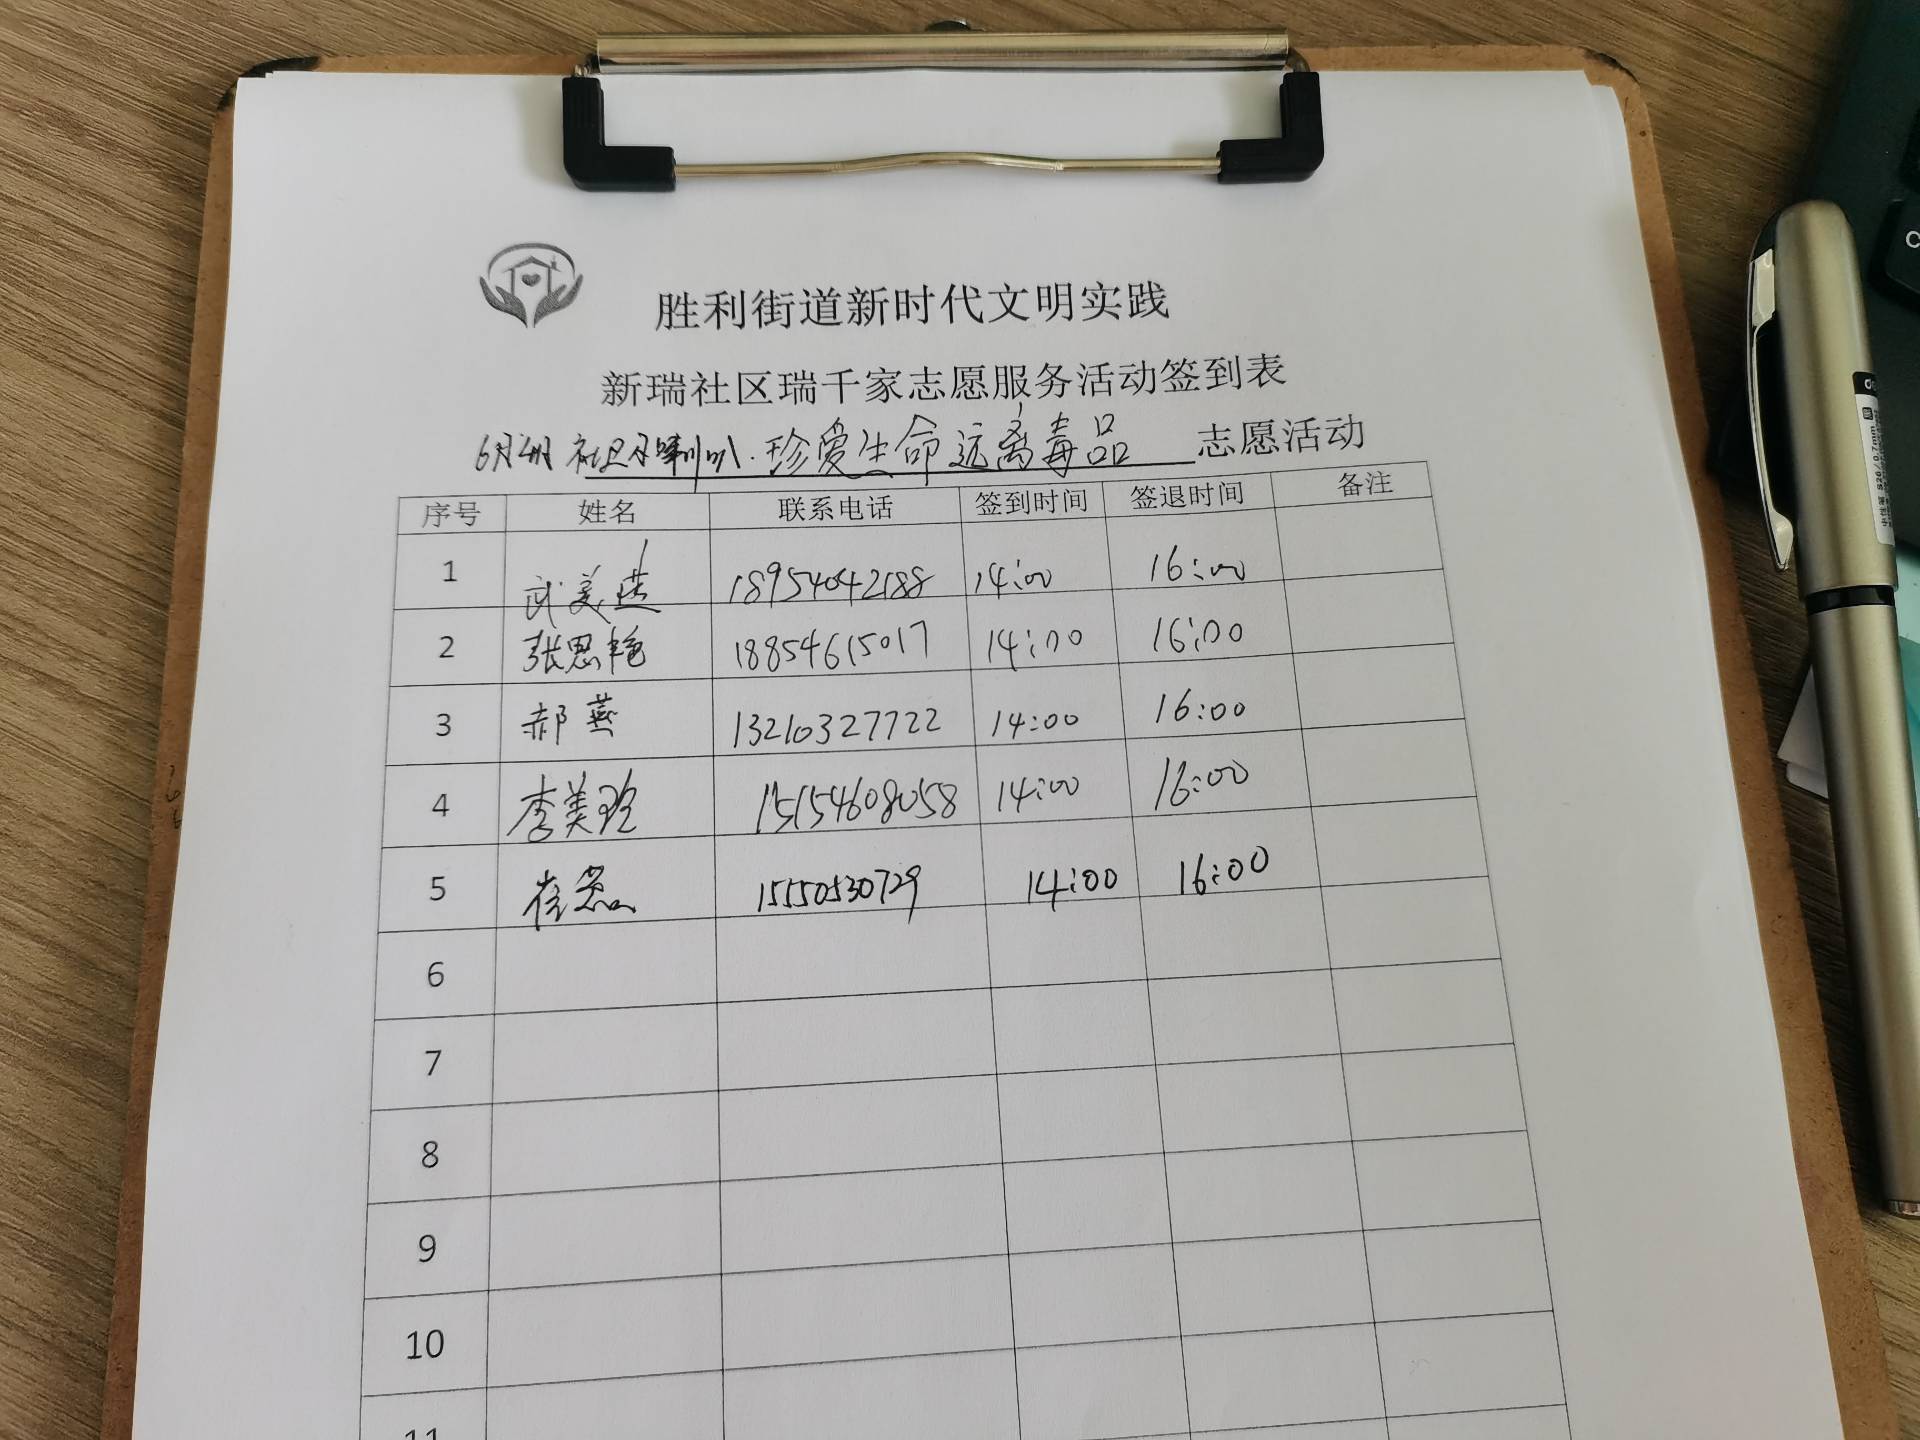 胜利街道新时代文明实践
新瑞社区瑞千家志愿服务活动签到表
6月 社区小喇叭·珍爱生命远离毒品 志愿活动
序号 姓名 联系电话 签到时间 签退时间 备注
1 武美莲 18954042188 14:00 16:00
2 张思艳 18854615017 14:00 16:00
3 郝燕 13210327722 14:00 16:00
4 李美玲 15154608058 14:00 16:00
5 崔蕊 15550530729 14:00 16:00
6
7
8
9
10
11